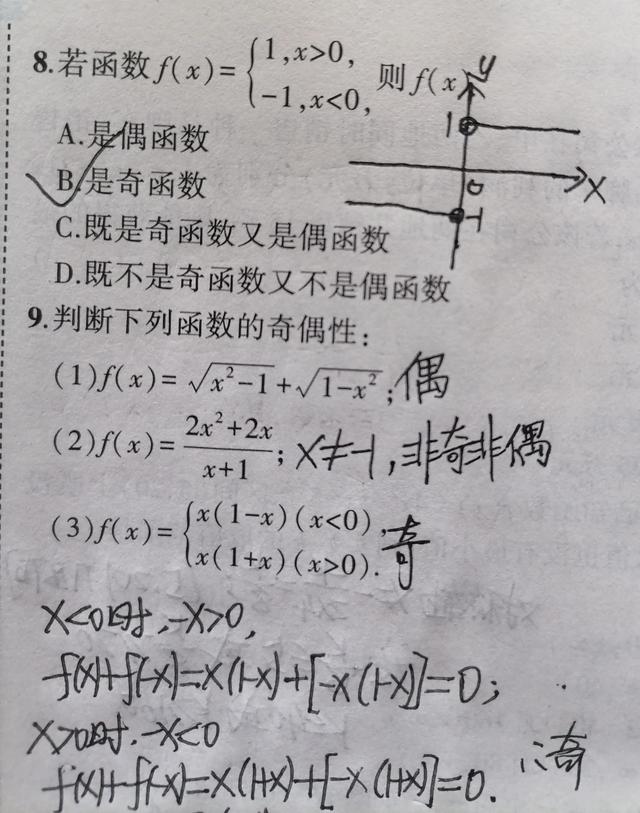 8.若函数f(x)={1,x>0, -1,x<0, 则f(x
y
1
0
x
-1
A.是偶函数
B.是奇函数
C.既是奇函数又是偶函数
D.既不是奇函数又不是偶函数
9.判断下列函数的奇偶性:
(1)f(x)=√(x²-1)+√(1-x²);偶
(2)f(x)=(2x²+2x)/(x+1);x≠-1,非奇非偶
(3)f(x)={x(1-x)(x<0), x(1+x)(x>0).奇
x<0时,-x>0,
f(x)+f(-x)=x(1-x)+[-x(1-x)]=0;
x>0时,-x<0
f(x)+f(-x)=x(1+x)+[-x(1+x)]=0.
∴奇